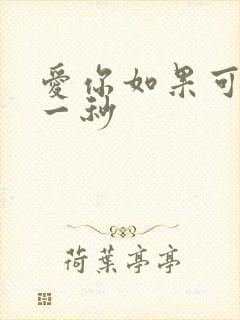 愛你如果可
一秒
荷葉亭亭